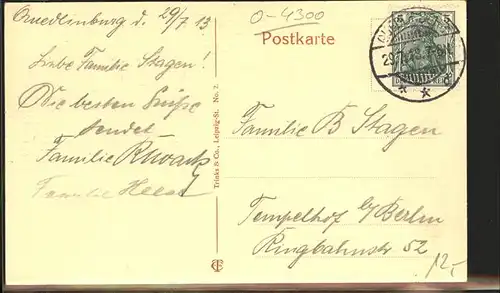 Quedlinburg d. 29/7 13
Liebe Familie Stagen!
Die besten Grüße
sendet
Familie
Familie
Trinks & Co., Leipzig-St. No. 2.
O-4300
Postkarte
29.7.13.
Familie B Stagen
Tempelhof b/Berlin
Ringbahnstr 52
12,-